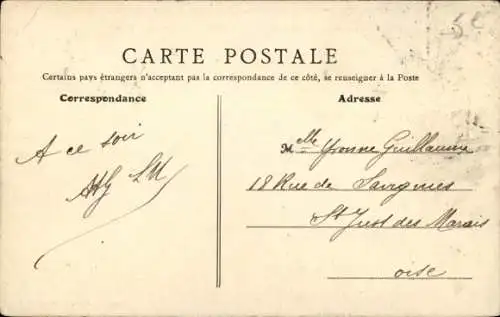 5c
CARTE POSTALE
Certains pays étrangers n'acceptant pas la correspondance de ce côté, se renseigner à la Poste
Correspondance
Adresse
A ce soir
Melle Yvonne Guillaume
18 Rue de Savignies
St Just des Marais
oise